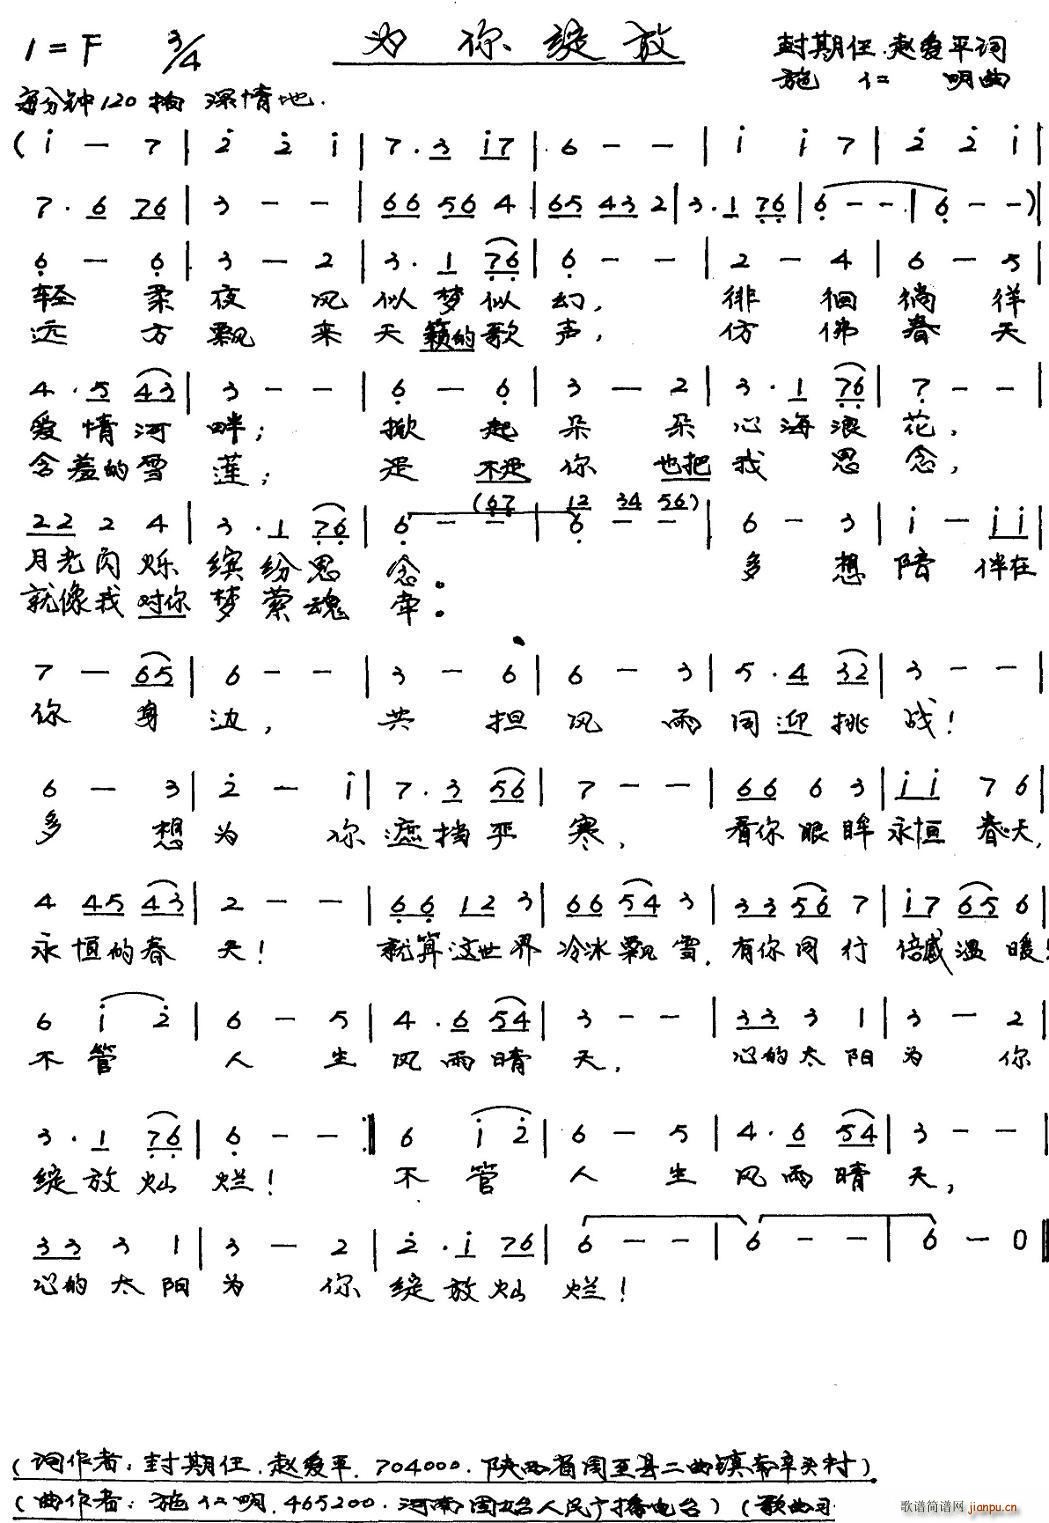 1=F 3/4 为你绽放 封期任.赵爱平词
每分钟120拍 深情地. 施仁明曲
(i̇ — 7 | 2̇ 2̇ i̇ | 7·3 i̇7 | 6 — — | i̇ i̇ 7 | 2̇ 2̇ i̇ |
7·6 76 | 3 — — | 66 56 4 | 65 43 2 | 3·1 76 | 6 — — | 6 — —) |
6 — 6 | 3 — 2 | 3·1 76 | 6 — — | 2 — 4 | 6 — 5 |
轻柔夜风似梦似幻, 徘徊徜徉
远方飘来天籁的歌声, 仿佛春天
4·5 43 | 3 — — | 6 — 6 | 3 — 2 | 3·1 76 | 7 — — |
爱情河畔; 掀起朵朵心海浪花,
含羞的雪莲; 是不是你也把我思念,
(67 12 34 56)
22 2 4 | 3·1 76 | 6 — — | 6 — — | 6 — 3 | i̇ — i̇i̇ |
月光闪烁缤纷思念。 多想陪伴在
就像我对你梦萦魂牵。
7 — 65 | 6 — — | 3 — 6 | 6 — 3 | 5·4 32 | 3 — — |
你身边, 共担风雨同迎挑战!
6 — 3 | 2̇ — i̇ | 7·3 56 | 7 — — | 66 6 3 | i̇i̇ 7 6 |
多想为你遮挡严寒, 看你眼眸永恒春天,
4 45 43 | 2 — — | 66 12 3 | 66 54 3 | 33 56 7 | i̇7 65 6 |
永恒的春天! 就算这世界冷冰飘雪,有你同行倍感温暖!
6 i̇ 2̇ | 6 — 5 | 4·6 54 | 3 — — | 33 3 1 | 3 — 2 |
不管人生风雨晴天, 心的太阳为你
3·1 76 | 6 — — :‖ 6 i̇ 2̇ | 6 — 5 | 4·6 54 | 3 — — |
绽放灿烂! 不管人生风雨晴天,
33 3 1 | 3 — 2 | 2̇·i̇ 76 | 6 — — | 6 — — | 6 — 0 ‖
心的太阳为你绽放灿烂!
(词作者:封期任.赵爱平.704000.陕西省周至县二曲镇南辛头村)
(曲作者:施仁明.465200.河南固始人民广播电台)(歌曲习
歌谱简谱网 jianpu.cn